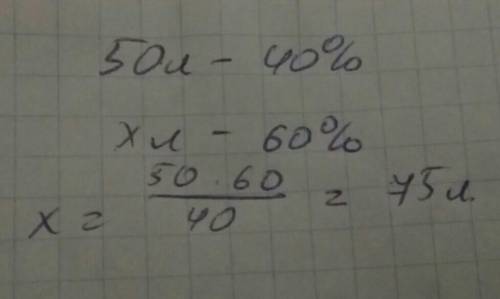 50л - 40%
xл - 60%
x = 50 · 60 / 40 = 75л.